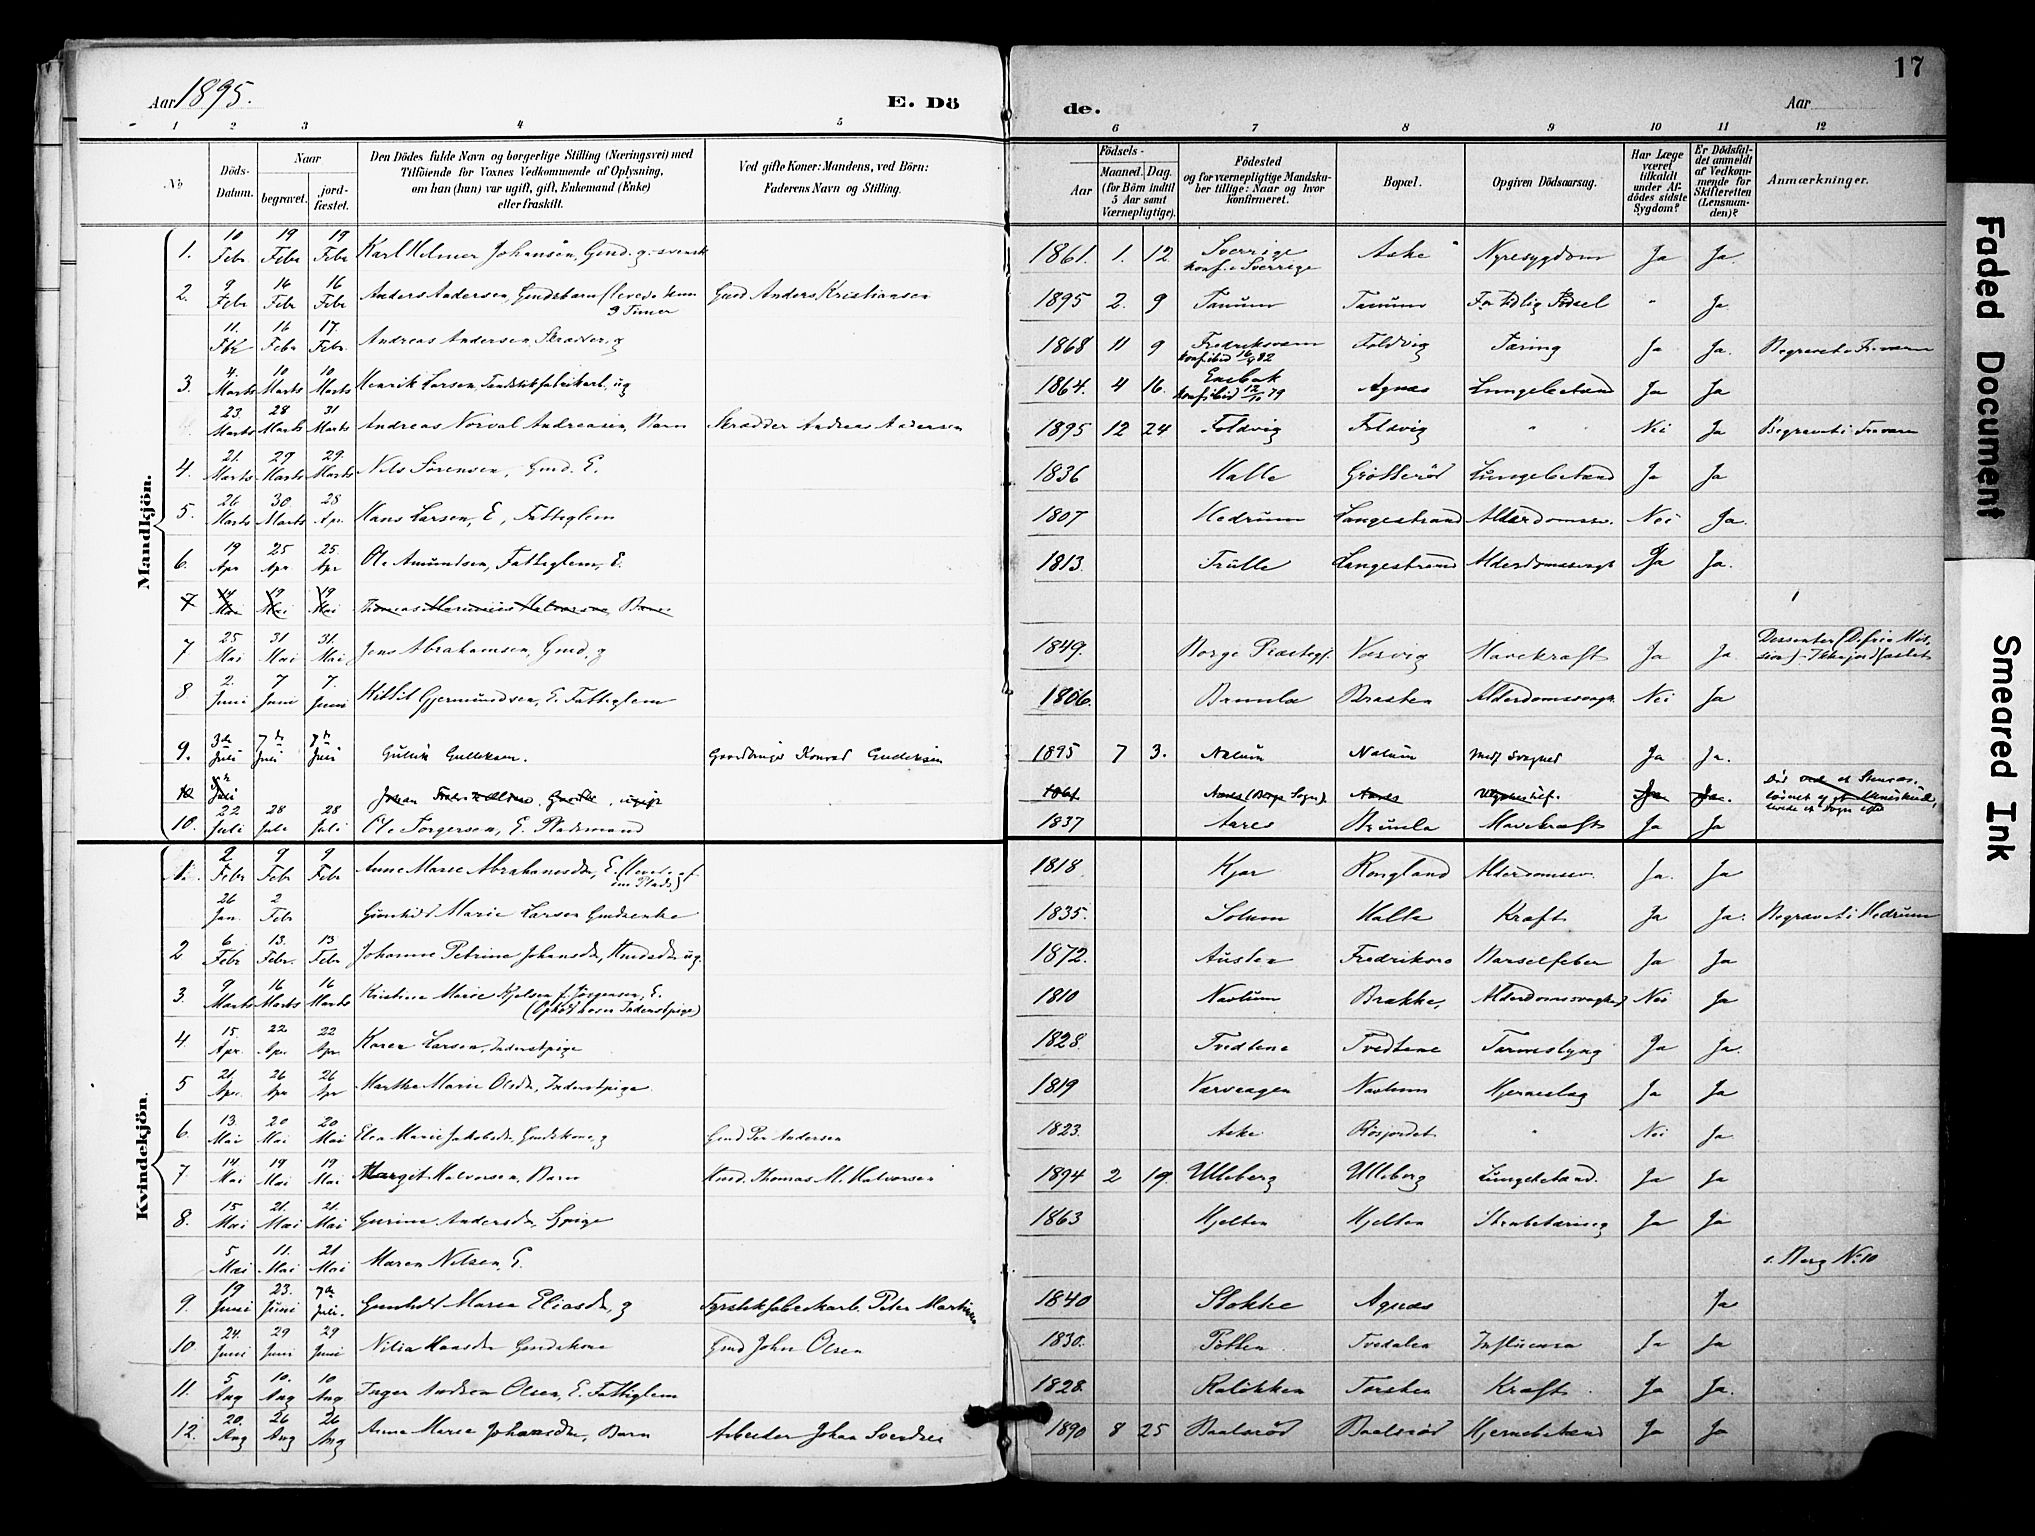 Aar 1895.
E. Dö
de.
Aar
17
1 2 3 4 5 6 7 8 9 10 11 12
No
Döds-Datum.
Naar
begravet.
jordfæstet.
Den Dödes fulde Navn og borgerlige Stilling (Næringsvei) med
Tilföiende for Voxnes Vedkommende af Oplysning,
om han (hun) var ugift, gift, Enkemand (Enke)
eller fraskilt.
Ved gifte Koner: Mandens, ved Börn:
Faderens Navn og Stilling.
Födsels-
Aar
Maaned. Dag.
(for Börn indtil
5 Aar samt
Værnepligtige).
Födested
og for værnepligtige Mandskaber tillige: Naar og hvor
konfirmeret.
Bopæl.
Opgiven Dödsaarsag.
Har Læge
været
tilkaldt
under Afdödes sidste
Sygdom?
Er Dödsfaldet anmeldt
af Vedkommende for
Skifteretten
(Lensmanden)?
Anmærkninger.
Mandkjön.
1. 10 Febr 19 Febr 19 Febr Karl Helmer Johansen, Gmd. g. svensk 1861. 1. 12. Sverrige konf. i Sverrige Aske Nyresygdom Ja Ja
2. 9 Febr 16 Febr 16 Febr Anders Andersen, Gmdsbarn (levede kun 9 Timer Gmd Anders Kristiansen 1895 2. 9 Tanum Tanum For tidlig Födsel " Ja
11. Feb 16 Febr 17. Febr. Andreas Andersen, Skrædder, g 1868 11 9 Fredriksværn Foldvig Tæring Ja Ja. Begravet i Fr.værn
3. 4. Marts 10 Marts 10 Marts Henrik Larsen Tendstikfabrikarb. ug 1864. 4 16. Enebak Agnæs Lungebetænd Ja Ja
23. Marts 28 Marts 31 Marts Andreas Norval Andreasen, Barn Skrædder Andreas Andersen 1895 12 24 Foldvig Foldvig " " Nei Ja Begravet i Fr.værn
4. 21. Marts 29 Marts 29. Marts Nils Sørensen, Gmd. E. 1836 Halle Grötteröd Lungebetænd Ja Ja
5. 26 Marts 30. Marts 28 Apr. Hans Larsen, E, Fattiglem 1807 Hedrum Langestrand Alderdomssv. Nei Ja.
6. 19 Apr 25 Apr 25. Apr Ole Amundsen, Fattiglem, E. 1813. Langestrand Alderdomssvagh Ja Ja.
7 14 Mai 19 Mai 19 Mai Thomas Halvorsen Barn
7 25 Mai 31 Mai 31. Mai Jens Abrahamsen, Gmd, g 1849. Borge Præstegj. Vasvig Mavekræft Ja Ja Dissenter (D. frie Mission) - Ikke jordfæstet
8 2. Juni 7 Juni 7. Juni Kittil Gjermundsen, E. Fattiglem 1806. Brunla Brasten Alderdomssvagh. Nei Ja
9. 3de Juli 7de Juli 7de Juli Gullik Gulliksen. Gaardbruger Konrad Gulliksen 1895 7 3. Nalum Nalum medf Svaghed Ja Ja.
10 Juli Johan 1861 Aares (Berg Sogn). Aares Ja Ja.
10. 22 Juli 28 Juli 28 Juli Ole Torgersen, E. Pladsmand 1837 Aares Brunla Mavekræft Ja Ja
Kvindekjön.
1. 2 Febr 9 Febr 9 Febr Anne Marie Abrahamsdtr, E. (levede af sin Plads) 1818. Kjær Rongland Alderdomssv. Ja. Ja
26 Jan. 2 Febr Gunhild Marie Larsen Gmdsenke 1835. Solum Halle Kræft Ja Ja. Begravet i Hedrum
2 6. Febr 13. Febr. 13 Febr Johanne Petrine Johansdtr, Hmdsdtr ug. 1872. Austen Fredriksv. Barselfeber Ja Ja
3. 9 Marts 16 Marts 16 Marts Kristine Marie Kjelsen f. Jørgensen, E. 1810 Navlum Brække, Alderdomssvaghed Nei Ja
4 15 Apr. 22 Apr. 22 Apr Karen Larsen, Inderstpige 1828. Tvedtene Tvedtene Tarmslyng Ja Ja.
5 21. Apr. 26 Apr 26 Apr Marthe Marie Olsdtr, Inderstpige. 1819 Værvaagen Navlum Hjerneslag Ja Ja
6. 13. Mai 20 Mai 20 Mai Elen Marie Jakobsdtr, Gmdskone, g Gmd Per Andersen 1823. Aske. Rösjordet " Nei Ja
7. 14 Mai 19 Mai 19 Mai Margit Halvorsen, Barn Hmd. Thomas M. Halvorsen 1894 2 19. Ulleberg Ulleberg Lungebetænd. Ja Ja
8. 15 Mai 21. Mai 21. Mai Gurine Andersdtr, Pige 1863 Hjelten Hjelten Strubetæring Ja Ja
5 Mai 11. Mai 21 Mai Maren Nilsen, E. s. Berg No 10
9. 19 Juni 23. Juni 7de Juli. Gunhild Maria Eliasdtr, g Fyrstikfabrikarb. Peter Martinsen 1840 Stokke Agnæs Ja
10 24. Juni 29 Juni 29 Juni Nilia Hansdtr Gmdskone Gmd John Olsen 1830. Pötten Tvedalen Influensa Ja Ja
11. 5 Aug 10. Aug 10 Aug Inger Andrea Olsen, E. Fattiglem 1828. Kalökken Torsten Kræft. Ja Ja.
12. 20. Aug 26 Aug 26 Aug Anne Marie Johansdtr, Barn Arbeider Johan Svendsen 1890 8 25 Baalsröd Baalsröd Hjernebetænd Ja Ja
Faded Document
Smeared Ink